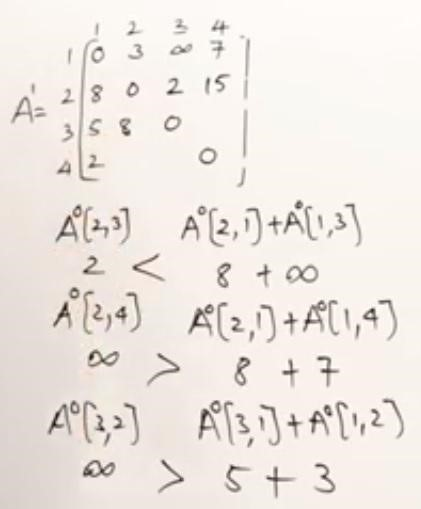 1 2 3 4
1 0 3 ∞ 7
A¹= 2 8 0 2 15
3 5 8 0
4 2 0
A⁰[2,3] A⁰[2,1]+A⁰[1,3]
2 < 8 + ∞
A⁰[2,4] A⁰[2,1]+A⁰[1,4]
∞ > 8 + 7
A⁰[3,2] A⁰[3,1]+A⁰[1,2]
∞ > 5 + 3